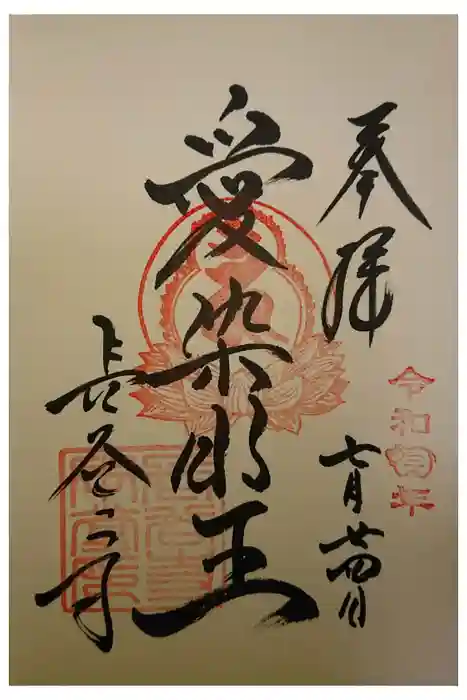 奉拝
令和四年
七月廿四日
愛染明王
長谷寺